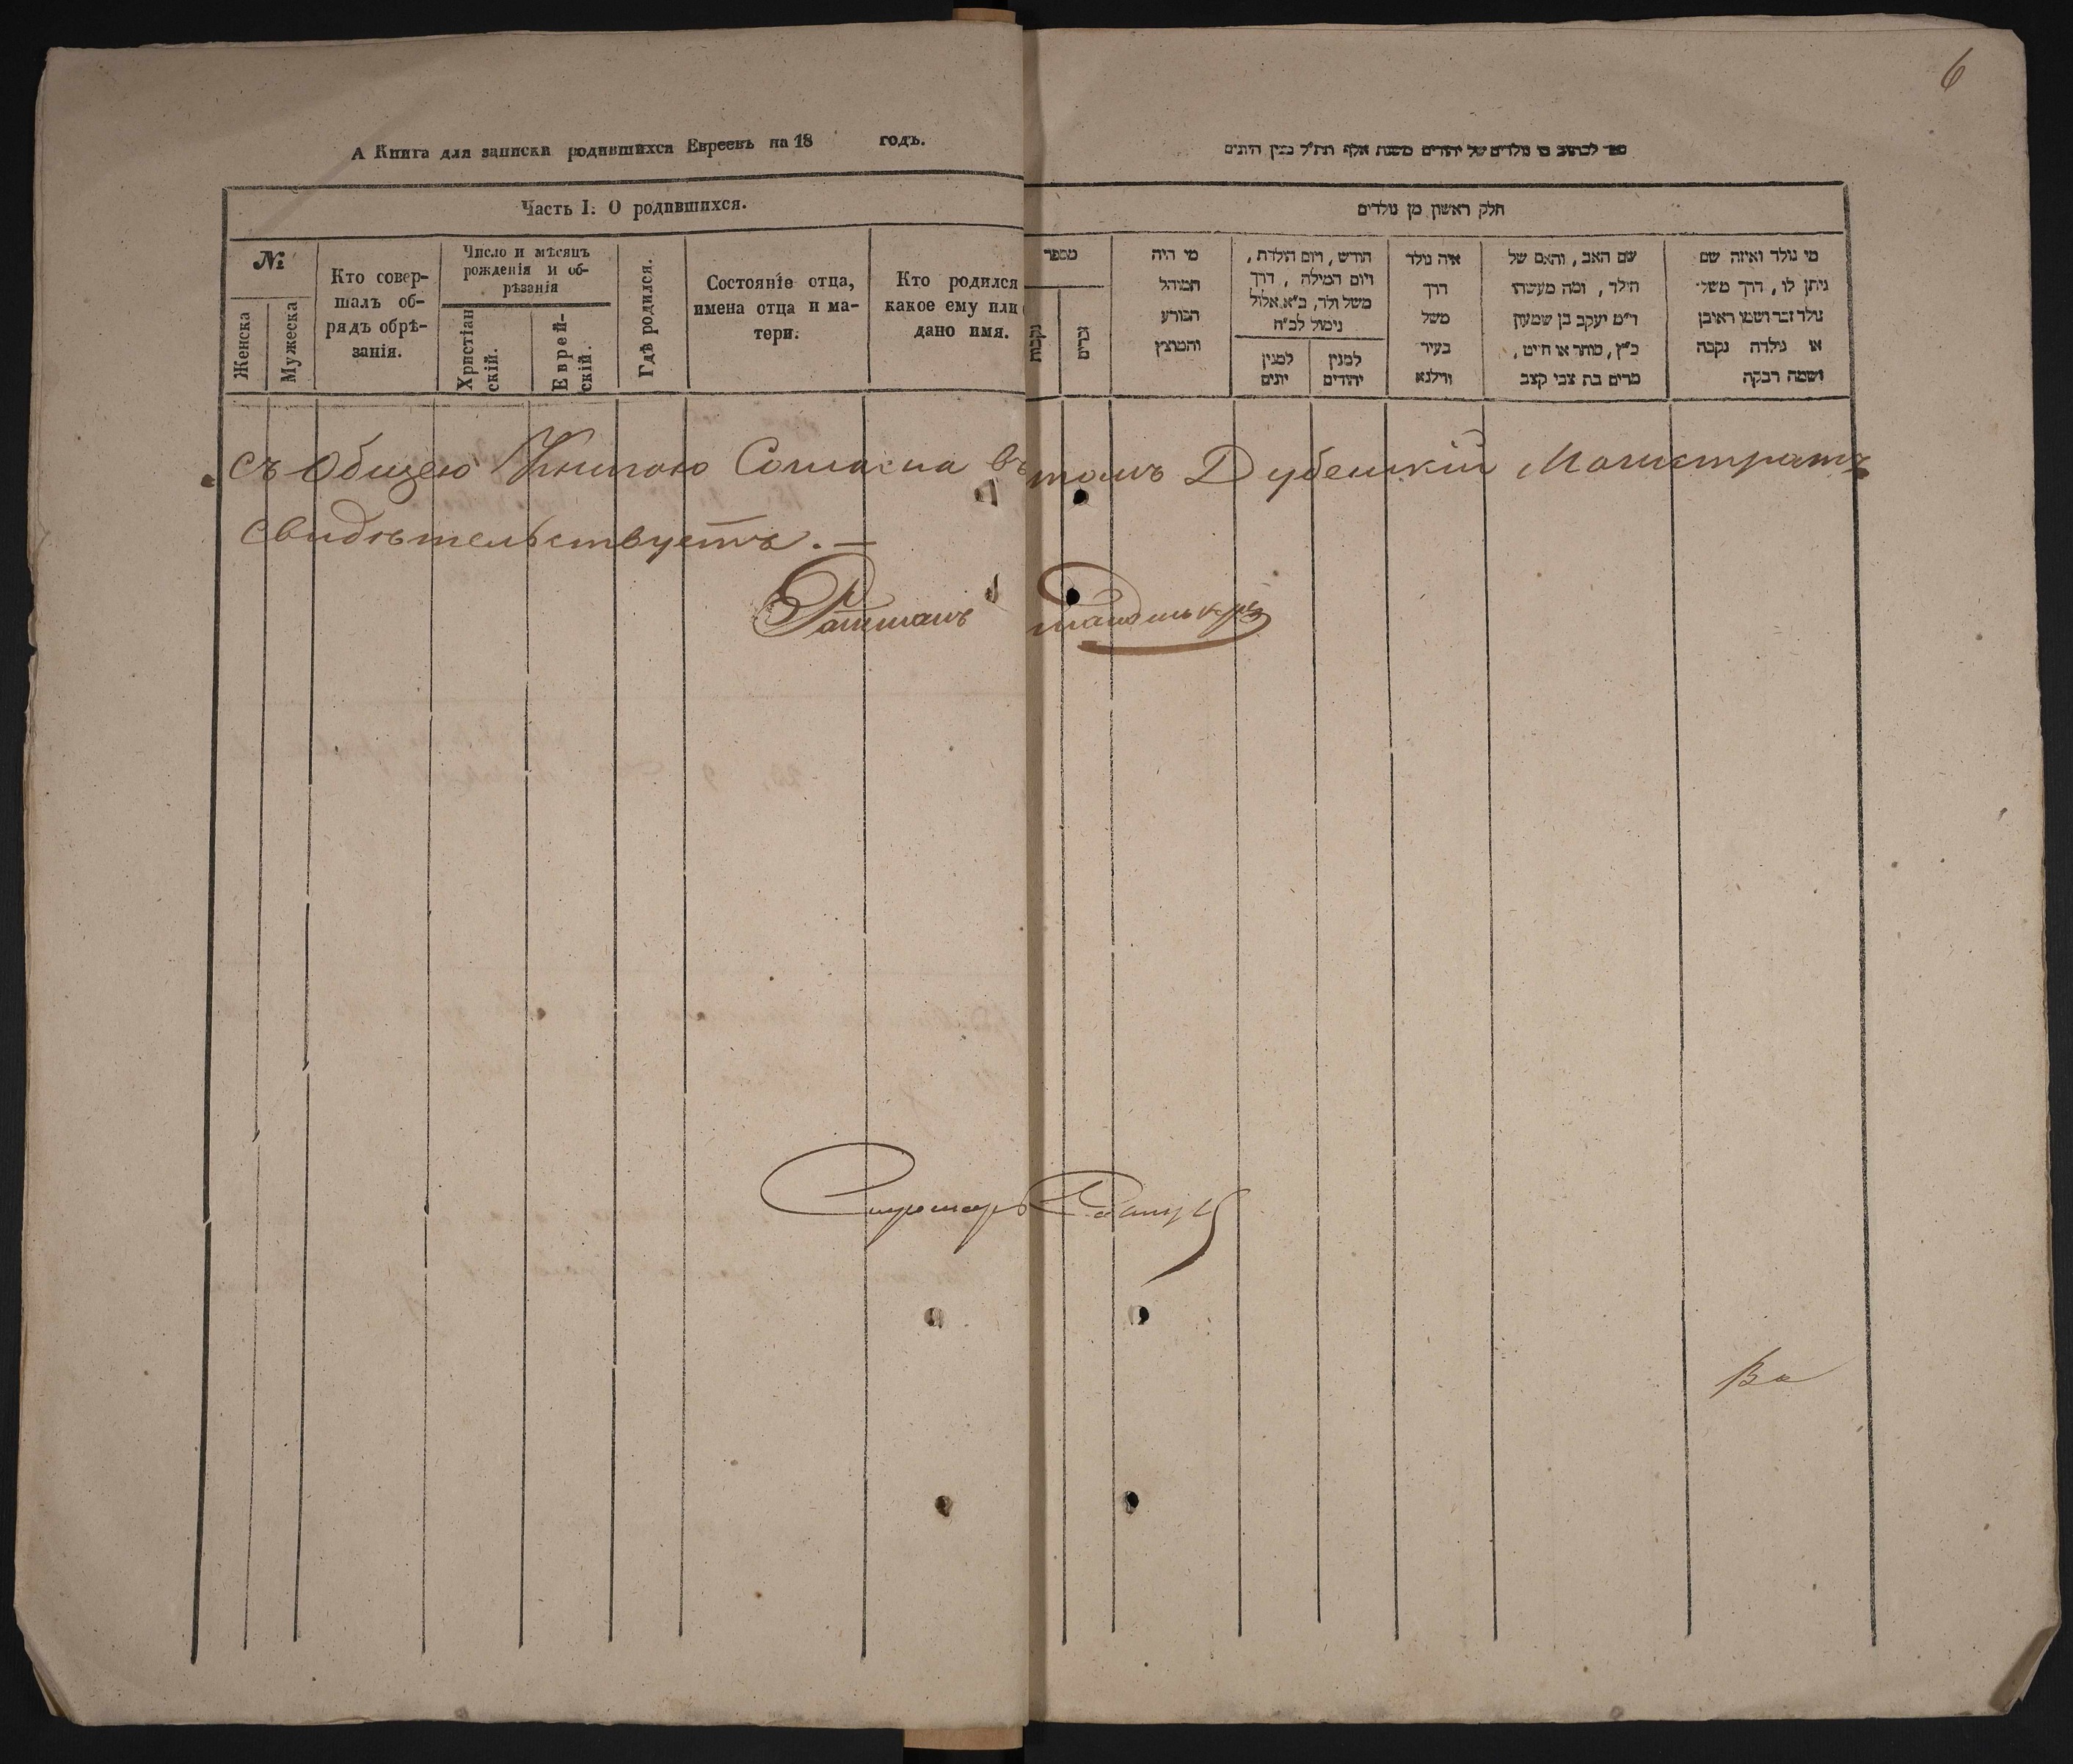 6
А Книга для записки родившихся Евреевъ на 18 годъ.
ספר לכתוב בו נולדים של יהודים משנת אלף תת״ל במנין היונים
Часть I. О родившихся.
חלק ראשון מן נולדים
№
Женска
Мужеска
Кто совер-
шалъ об-
рядъ обрѣ-
занія.
Число и мѣсяцъ
рожденія и об-
рѣзанія
Христіан
скій.
Еврей-
скій.
Гдѣ родился.
Состояніе отца,
имена отца и ма-
тери.
Кто родился
какое ему или
дано имя.
מספר
נקבות
זכרים
מי היה
המוהל
הפורע
והמוצץ
חודש, ויום הולדת,
ויום המילה, דרך
משל ולד, ב״א אלול
נימול לכ״ח
למנין
יונים
למנין
יהודים
איה נולד
דרך
משל
בעיר
ווילנא
שם האב, והאם של
הילד, ומה מעשהו
ר״מ יעקב בן שמעון
כ״ץ, סוחר או חייט,
מרים בת צבי קצב
מי נולד ואיזה שם
ניתן לו, דרך משל
נולד זכר ושמו ראובן
או נולדה נקבה
ושמה רבקה
Съ Общею Книгою Согласна въ томъ Дубенскій Магистратъ
свидѣтельствуетъ. —
Ратманъ